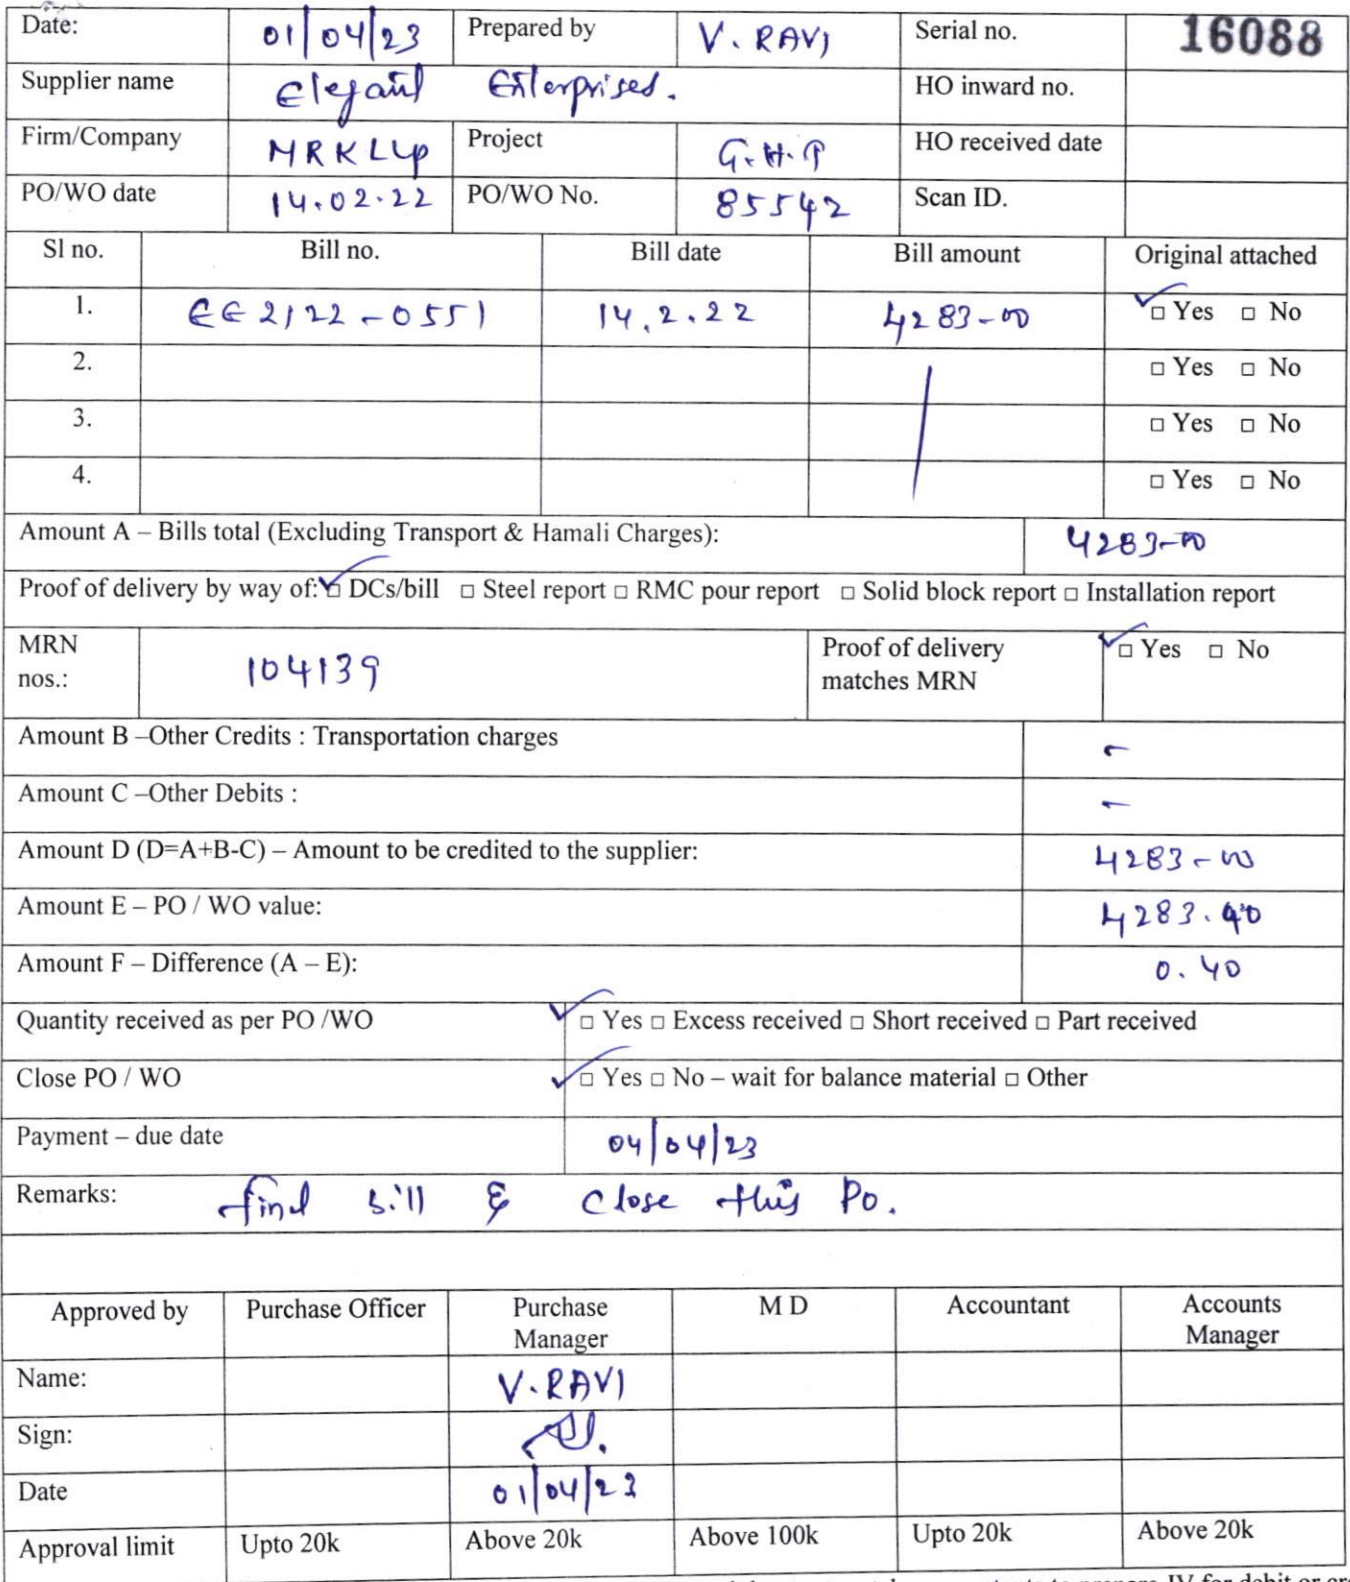 Date: 01/04/23 Prepared by V. RAVI Serial no. 16088
Supplier name Elegant Enterprises. HO inward no.
Firm/Company MRKLLP Project G.H.P HO received date
PO/WO date 14.02.22 PO/WO No. 85542 Scan ID.
Sl no. Bill no. Bill date Bill amount Original attached
1. EE2122-0551 14.2.22 4283-00 ☑ Yes □ No
2. □ Yes □ No
3. □ Yes □ No
4. □ Yes □ No
Amount A – Bills total (Excluding Transport & Hamali Charges): 4283-00
Proof of delivery by way of: ☑ DCs/bill □ Steel report □ RMC pour report □ Solid block report □ Installation report
MRN nos.: 104139 Proof of delivery matches MRN ☑ Yes □ No
Amount B –Other Credits : Transportation charges -
Amount C –Other Debits : -
Amount D (D=A+B-C) – Amount to be credited to the supplier: 4283-00
Amount E – PO / WO value: 4283.40
Amount F – Difference (A – E): 0.40
Quantity received as per PO /WO ☑ Yes □ Excess received □ Short received □ Part received
Close PO / WO ☑ Yes □ No – wait for balance material □ Other
Payment – due date 04/04/23
Remarks: find bill & close this Po.
Approved by Purchase Officer Purchase Manager M D Accountant Accounts Manager
Name: V.RAVI
Sign:
Date 01/04/23
Approval limit Upto 20k Above 20k Above 100k Upto 20k Above 20k